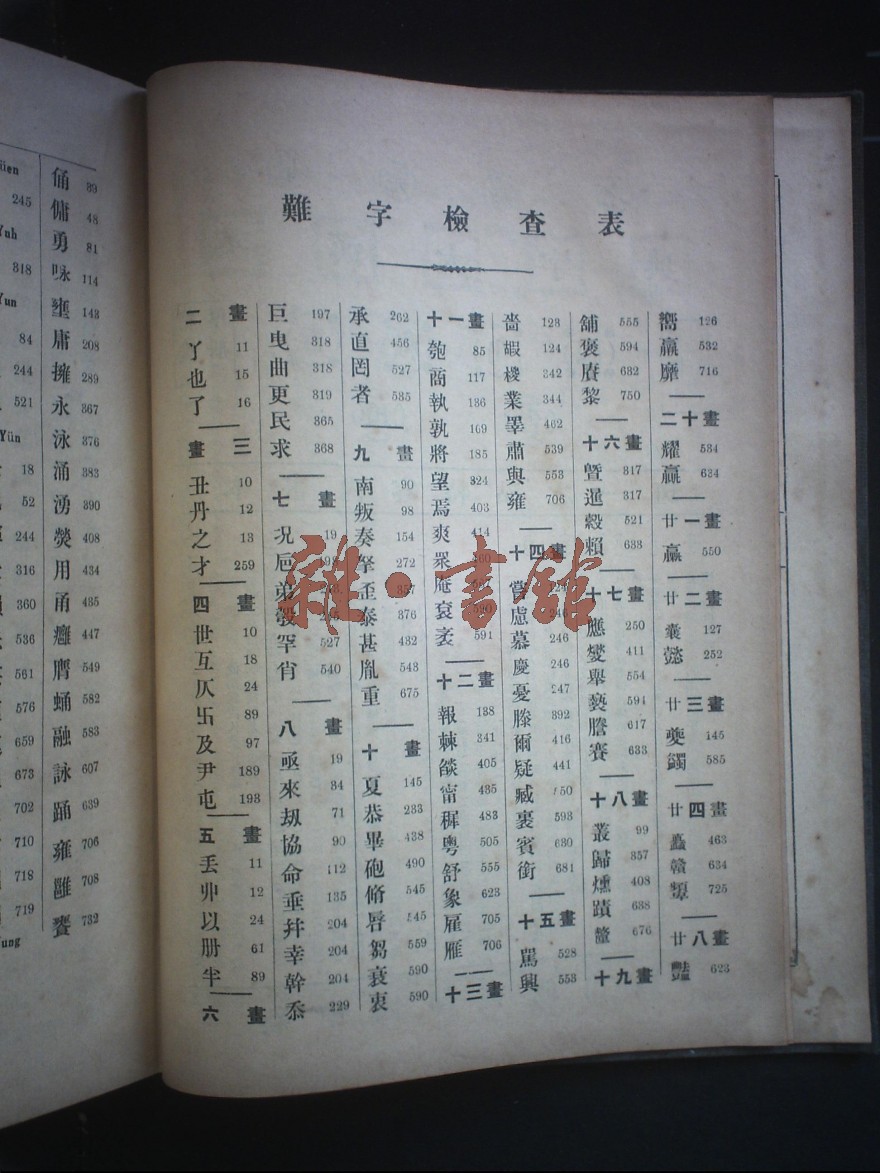 iien
245
Yuh
318
Yun
84
244
521
Yün
18
52
244
316
360
536
561
576
659
673
702
710
718
719
Yung
俑 39
傭 48
勇 81
咏 114
壅 143
庸 208
擁 289
永 367
泳 376
涌 383
湧 390
熒 408
用 434
甬 435
癰 447
膺 549
蛹 582
融 583
詠 607
踊 639
雍 706
雝 708
饔 732
難字檢查表
二畫
丫 11
也 15
了 16
三畫
丑 10
丹 12
之 13
才 259
四畫
世 10
互 18
仄 24
卐 89
及 97
尹 189
屯 193
五畫
丟 11
丱 12
以 24
册 61
半 89
六畫
巨 197
曳 318
曲 318
更 319
民 365
求 368
七畫
況 19
巵
弟
罕 527
肖 540
八畫
亟 19
來 34
刼 71
協 90
命 112
垂 135
幷 204
幸 204
幹 204
忝 229
承 262
直 456
罔 527
者 535
九畫
南 90
叛 98
奏 154
拏 272
歪 357
泰 376
甚 432
胤 543
重 675
十畫
夏 145
恭 233
畢 438
砲 490
脩 545
唇 545
芻 559
衰 590
衷 590
十一畫
匏 85
商 117
執 136
孰 169
將 185
望 324
焉 403
爽 414
眾 460
庵
袞 590
袤 591
十二畫
報 138
棘 341
燄 405
甯 435
稺 483
粵 505
舒 555
象 623
雇 705
雁 706
十三畫
嗇 123
嘏 124
棱 342
業 344
睪 462
肅 539
與 553
雍 706
十四畫
嘗 124
慮 246
慕 246
慶 246
憂 247
滕 392
爾 416
疑 441
臧 550
裹 593
賓 630
銜 681
十五畫
駡 528
興 553
舖 555
褒 594
賡 632
黎 750
十六畫
暨 317
暹 317
穀 521
賴 633
十七畫
應 250
燮 411
舉 554
褻 594
謄 617
賽 633
十八畫
叢 99
歸 357
燻 408
蹟 638
釐 676
十九畫
嚮 126
羸 532
靡 716
二十畫
耀 534
贏 634
廿一畫
臝 550
廿二畫
囊 127
懿 252
廿三畫
夔 145
蠲 585
廿四畫
矗 463
贛 634
顰 725
廿八畫
豔 623
雜·書館